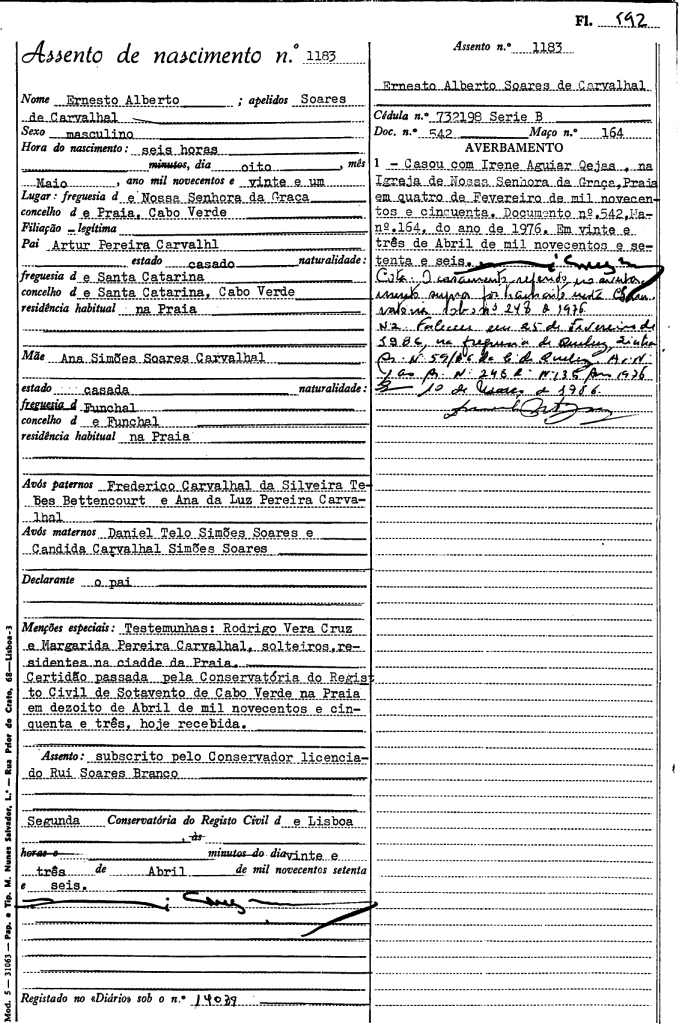 Fl. 592
Assento de nascimento n.º 1183
Nome Ernesto Alberto ; apelidos Soares
de Carvalhal
Sexo masculino
Hora do nascimento: seis horas
minutos, dia oito , mês
Maio , ano mil novecentos e vinte e um
Lugar: freguesia d e Nossa Senhora da Graça
concelho d e Praia, Cabo Verde
Filiação legítima
Pai Artur Pereira Carvalhl
estado casado naturalidade:
freguesia d e Santa Catarina
concelho d e Santa Catarina, Cabo Verde
residência habitual na Praia
Mãe Ana Simões Soares Carvalhal
estado casada naturalidade:
freguesia d Funchal
concelho d e Funchal
residência habitual na Praia
Avós paternos Frederico Carvalhal da Silveira Te-
les Bettencourt e Ana da Luz Pereira Carva-
lhal
Avós maternos Daniel Telo Simões Soares e
Candida Carvalhal Simões Soares
Declarante o pai
Menções especiais: Testemunhas: Rodrigo Vera Cruz
e Margarida Pereira Carvalhal, solteiros,re-
sidentes na ciadde da Praia.
Certidão passada pela Conservatória do Regist
to Civil de Sotavento de Cabo Verde na Praia
em dezoito de Abril de mil novecentos e cin-
quenta e três, hoje recebida.
Assento: subscrito pelo Conservador licencia-
do Rui Soares Branco
Segunda Conservatória do Registo Civil d e Lisboa
, às
horas e minutos do dia vinte e
três de Abril de mil novecentos setenta
e seis.
Registado no «Diário» sob o n.º 14039
Mod. 5 — 31063 — Pap. e Tip. M. Nunes Salvador, L.ª — Rua Prior do Crato, 68—Lisboa-3
Assento n.º 1183
Ernesto Alberto Soares de Carvalhal
Cédula n.º 732198 Serie B
Doc. n.º 542 Maço n.º 164
AVERBAMENTO
1 - Casou com Irene Aguiar Qejas , na
Igreja de Nossa Senhora da Graça,Praia
em quatro de Fevereiro de mil novecen-
tos e cincuenta. Documento nº.542,Ma-
nº.164, do ano de 1976. Em vinte e
três de Abril de mil novecentos e se-
tenta e seis.
Cota: O casamento referido no averba-
mento supra foi
nº 248 de 1976
N.2. Faleceu em 25 de Fevereiro de
1986, na freguesia de Queluz, Sintra
N.º 59/86 de Queluz
N.º 248 N.º 135 1976
10 de Março de 1986.